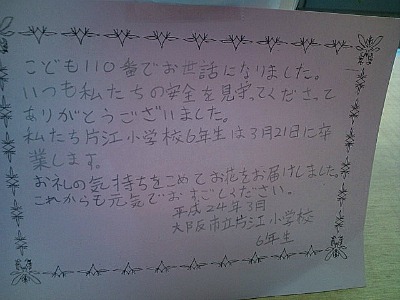 こども110番でお世話になりました。
いつも私たちの安全を見守ってくださって
ありがとうございました。
私たち片江小学校6年生は3月21日に卒
業します。
お礼の気持ちをこめてお花をお届けしました。
これからも元気でおすごしください。
平成24年3月
大阪市立片江小学校
6年生